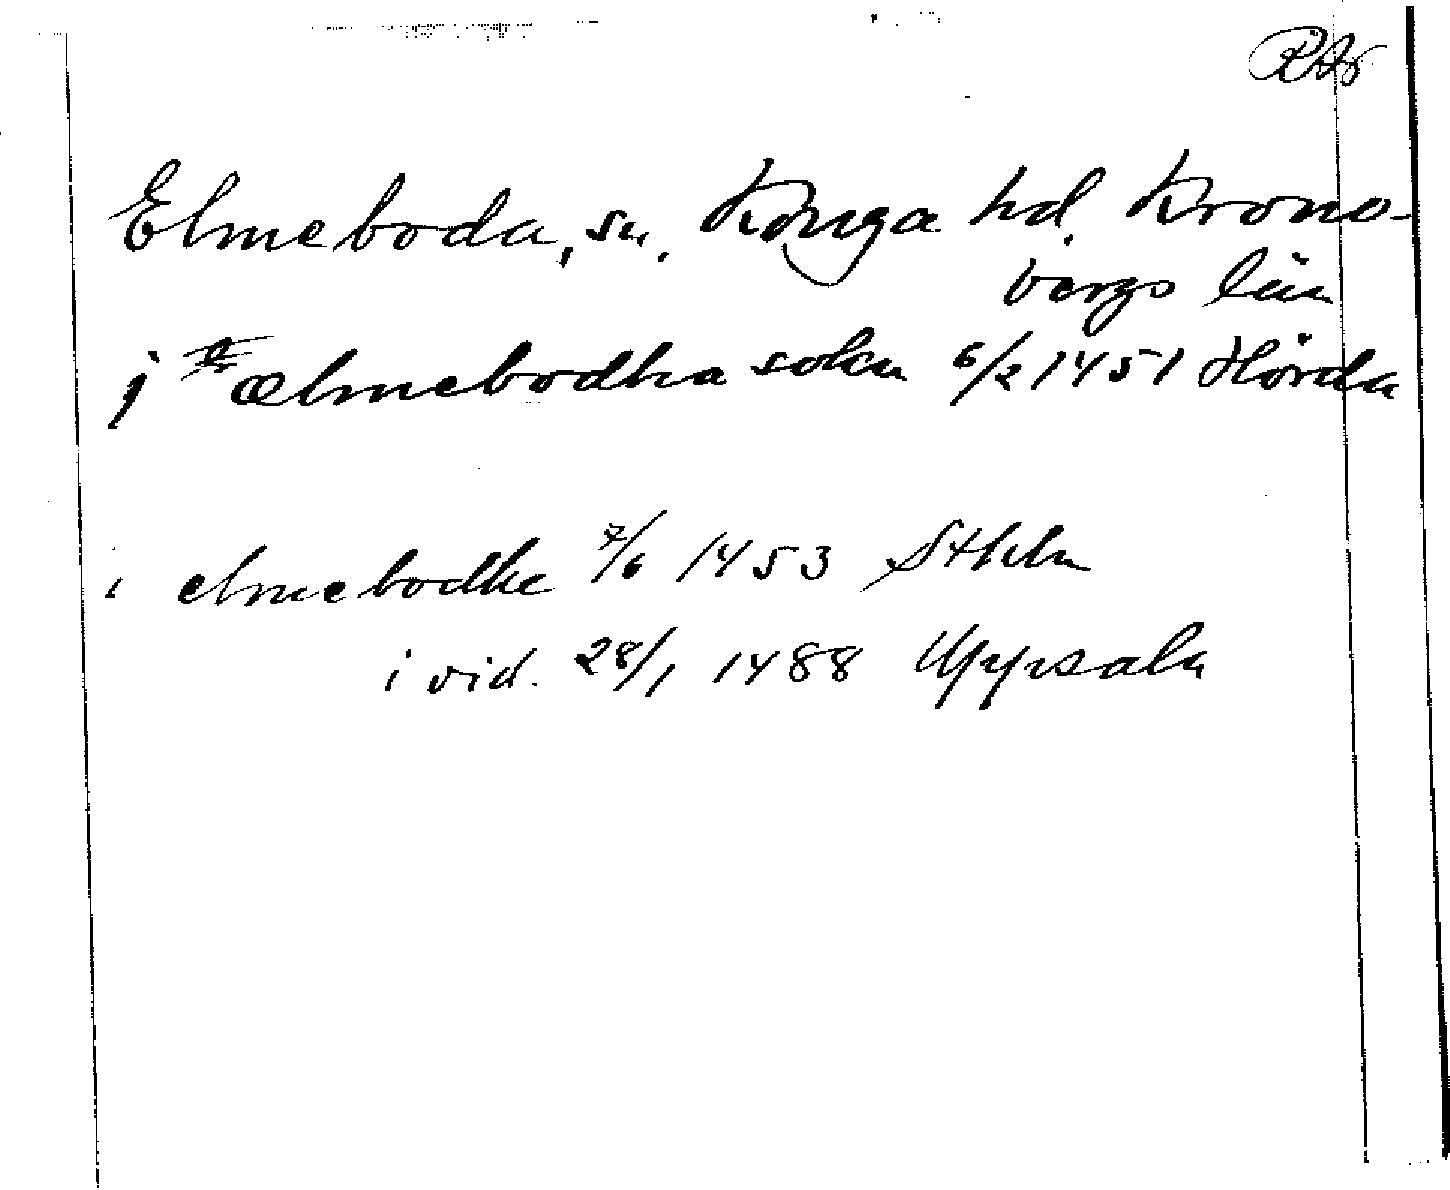 RAp
Elmeboda, sn, Konga hd. Krono-
bergs län
j ælmebodha sokn 6/2 1451 Hörda
i elmebodhe 7/6 1453 Sthlm
i vid. 28/1 1488 Uppsala